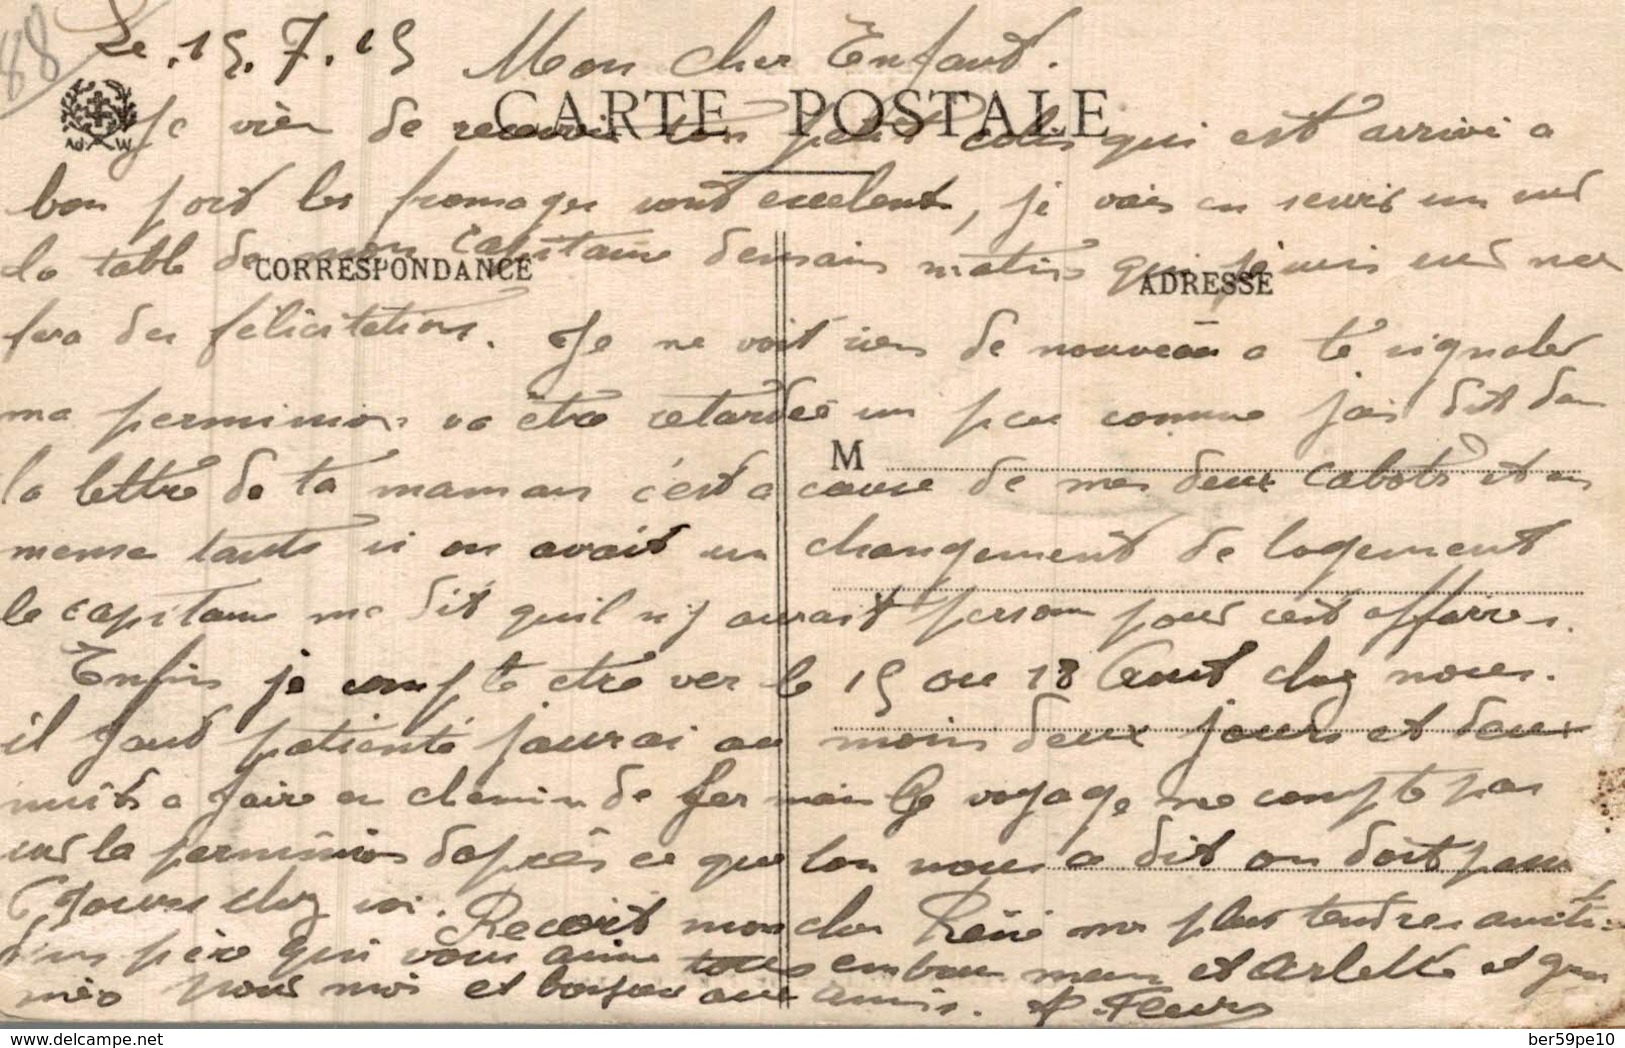 88
Le 15.7.15 Mon Cher Enfant.
CARTE POSTALE
AD W
Je vien de recevoir ton petit colis qui est arrivé a
bon port les fromages sont excelent, je vais en servir un sur
la table de mon capitaine demain matin qui je suis sur me
CORRESPONDANCE
ADRESSE
fera des félicitations. Je ne voit rien de nouveau a te signaler
ma permission va être retardée un peu comme jai dit dan
la lettre de ta maman c'est a cause de mes deux cabots et en
M
meme tants si on avait un changement de logement
le capitaine me dit quil n'y aurait person pour cest affaires.
Enfin je compte etre ver le 15 ou 18 Aout chez nous.
il faut patienté jaurai au moins deux jours et deux
nuits a faire en chemin de fer mais le voyage ne compte pas
sur la permission daprès ce que lon nous a dit on doit
6 jours chez soi. Recoit mon cher Réné mes plus tendres
dun père qui vous aime tous embrasse meme et Arlette et gran
mère pour moi et bonjour aux amis. P. Fleury
www.delcampe.net
ber59pe10